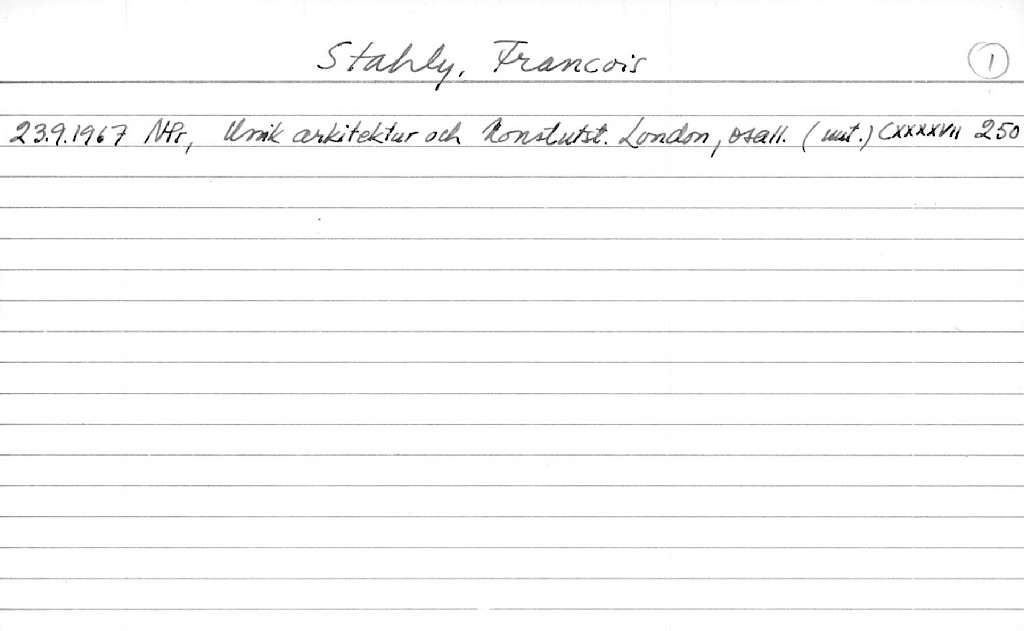 Stahly, Francois 1
23.9.1967 NPr, Unik arkitektur och Konstutst. London, osall. (uut.) CXXXXVII 250